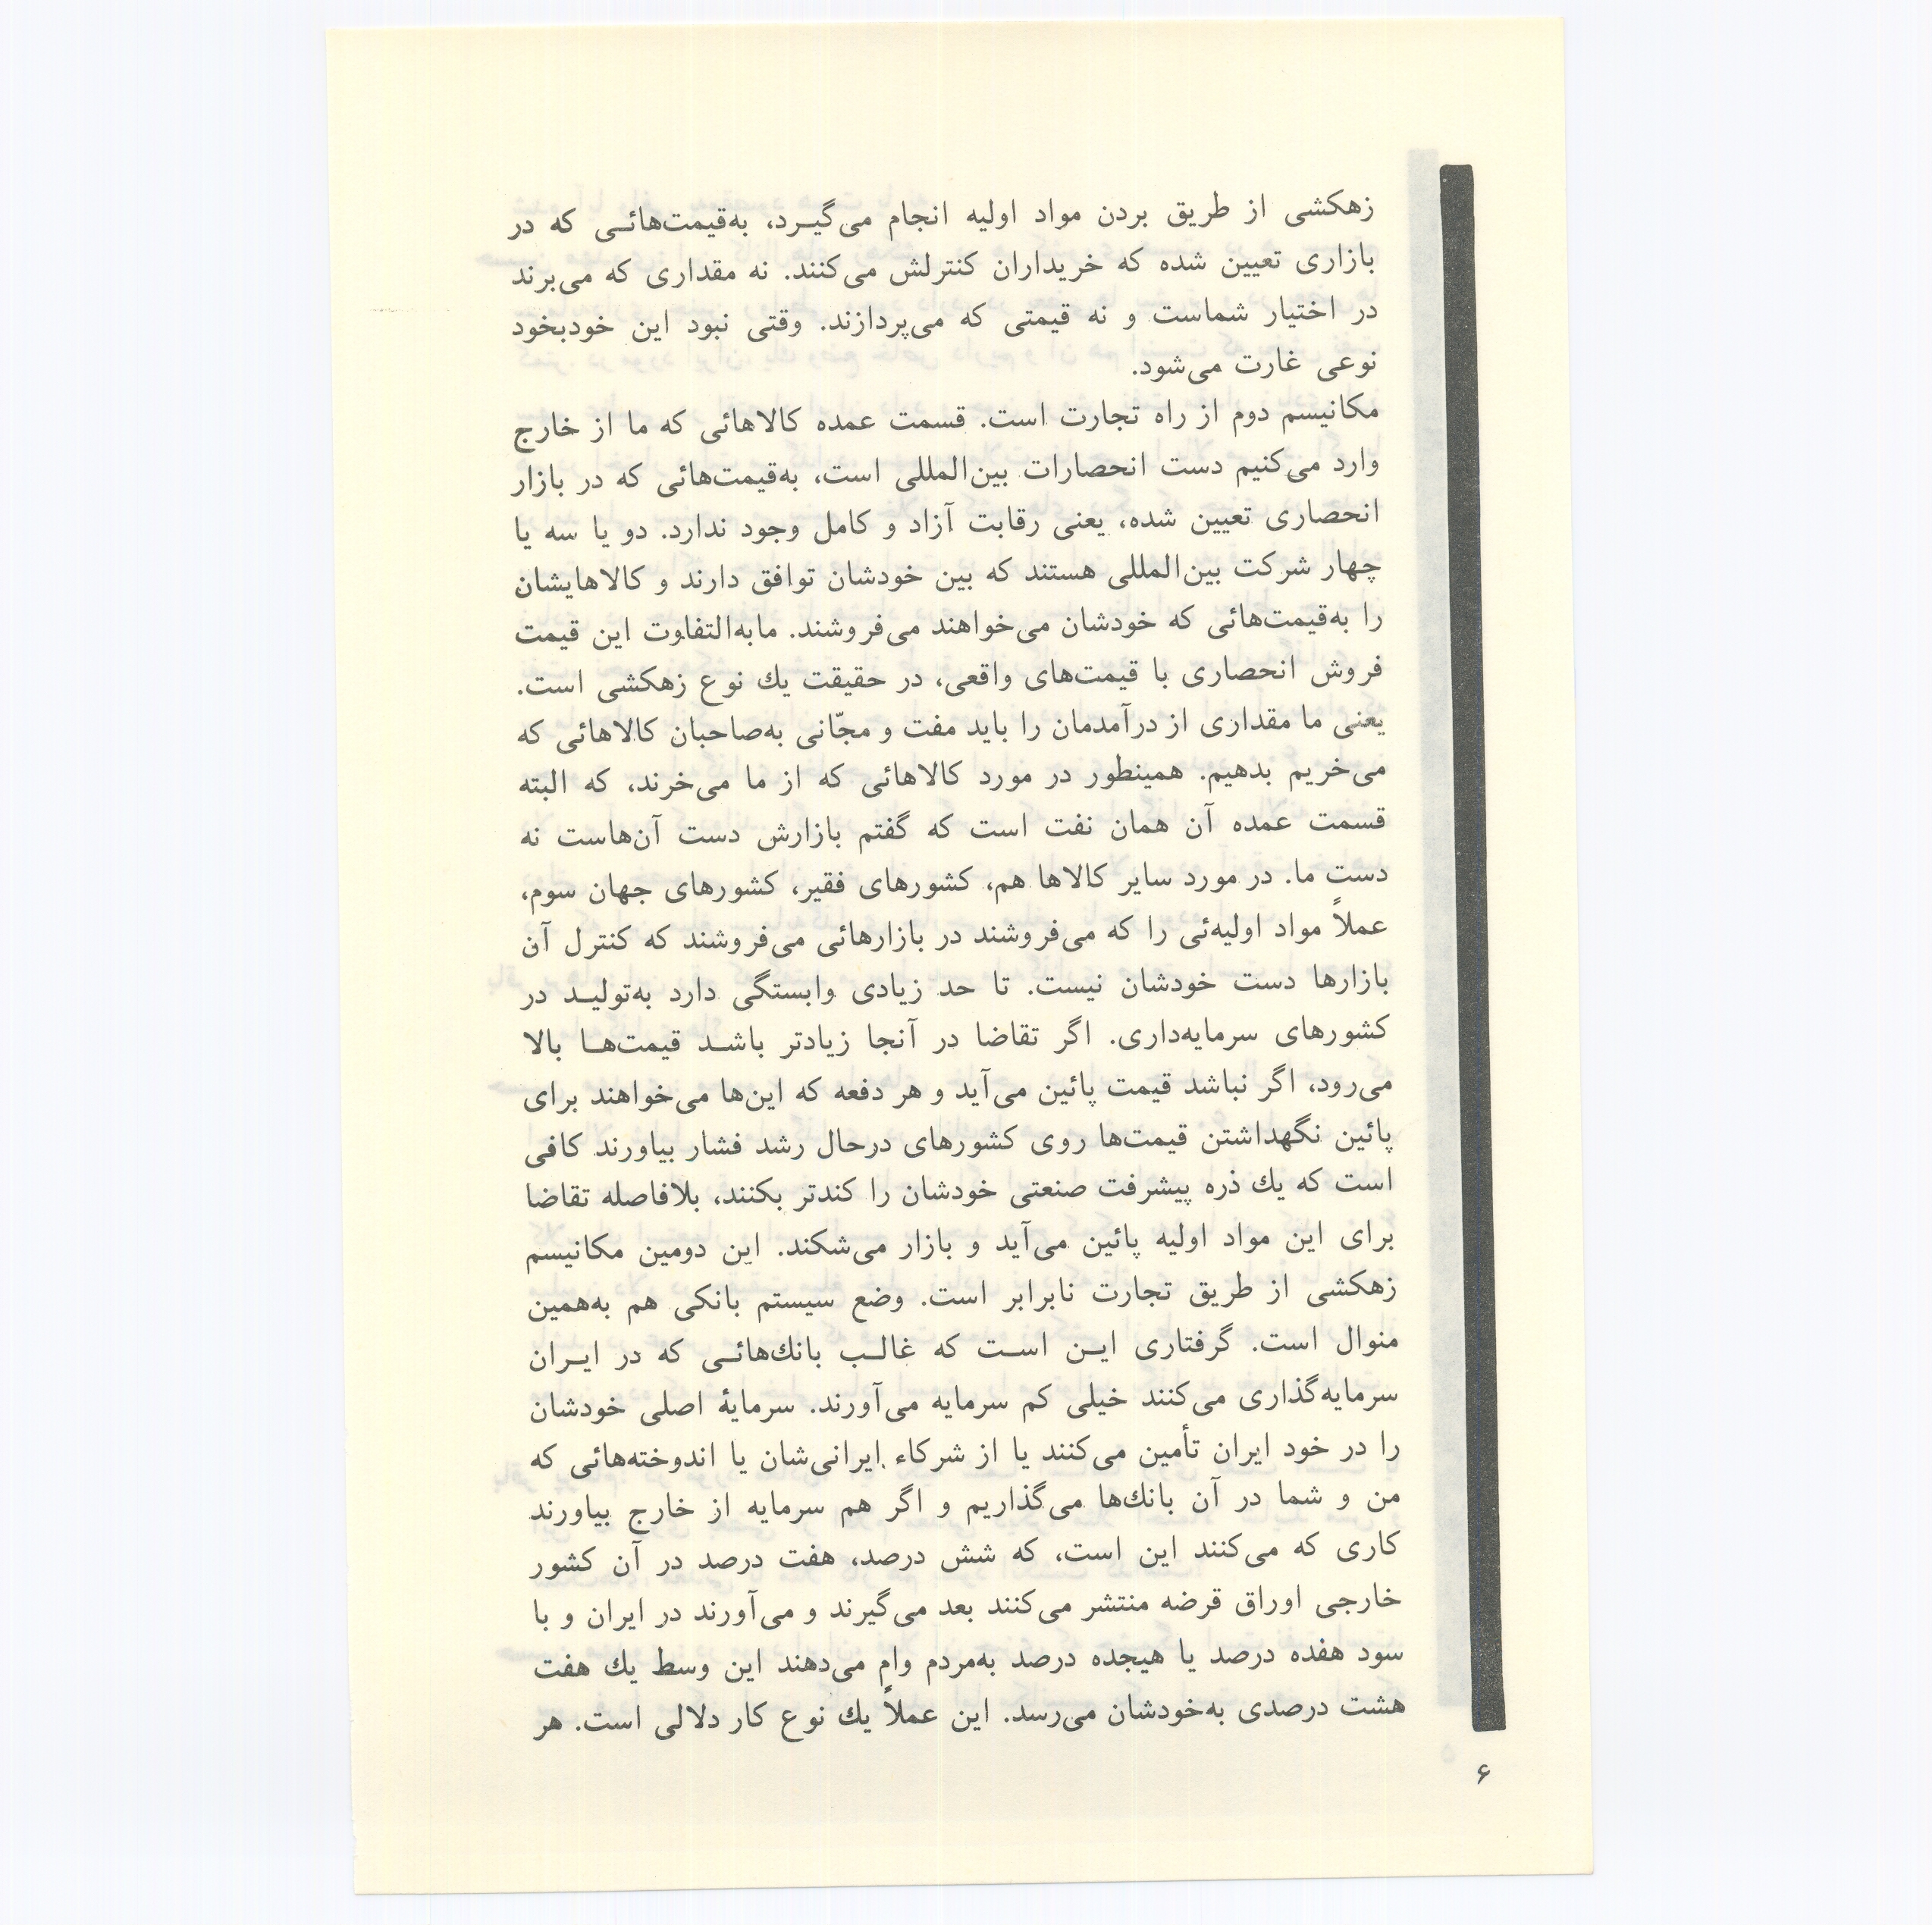 زهکشی از طریق بردن مواد اولیه انجام می‌گیـرد، به‌قیمت‌هائـی که در
بازاری تعیین شده که خریداران کنترلش می‌کنند. نه مقداری که می‌برند
در اختیار شماست و نه قیمتی که می‌پردازند. وقتی نبود این خودبخود
نوعی غارت می‌شود.
مکانیسم دوم از راه تجارت است. قسمت عمده کالاهائی که ما از خارج
وارد می‌کنیم دست انحصارات بین‌المللی است، به‌قیمت‌هائی که در بازار
انحصاری تعیین شده، یعنی رقابت آزاد و کامل وجود ندارد. دو یا سه یا
چهار شرکت بین‌المللی هستند که بین خودشان توافق دارند و کالاهایشان
را به‌قیمت‌هائی که خودشان می‌خواهند می‌فروشند. مابه‌التفاوت این قیمت
فروش انحصاری با قیمت‌های واقعی، در حقیقت یك نوع زهکشی است.
یعنی ما مقداری از درآمدمان را باید مفت و مجّانی به‌صاحبان کالاهائی که
می‌خریم بدهیم. همینطور در مورد کالاهائی که از ما می‌خرند، که البته
قسمت عمده آن همان نفت است که گفتم بازارش دست آن‌هاست نه
دست ما. در مورد سایر کالاها هم، کشورهای فقیر، کشورهای جهان سوم،
عملاً مواد اولیه‌ئی را که می‌فروشند در بازارهائی می‌فروشند که کنترل آن
بازارها دست خودشان نیست. تا حد زیادی وابستگی دارد به‌تولیـد در
کشورهای سرمایه‌داری. اگر تقاضا در آنجا زیادتر باشـد قیمت‌هـا بالا
می‌رود، اگر نباشد قیمت پائین می‌آید و هر دفعه که این‌ها می‌خواهند برای
پائین نگهداشتن قیمت‌ها روی کشورهای درحال رشد فشار بیاورند کافی
است که یك ذره پیشرفت صنعتی خودشان را کندتر بکنند، بلافاصله تقاضا
برای این مواد اولیه پائین می‌آید و بازار می‌شکند. این دومین مکانیسم
زهکشی از طریق تجارت نابرابر است. وضع سیستم بانکی هم به‌همین
منوال است. گرفتاری ایـن اسـت که غالـب بانك‌هائـی که در ایـران
سرمایه‌گذاری می‌کنند خیلی کم سرمایه می‌آورند. سرمایهٔ اصلی خودشان
را در خود ایران تأمین می‌کنند یا از شرکاء ایرانی‌شان یا اندوخته‌هائی که
من و شما در آن بانك‌ها می‌گذاریم و اگر هم سرمایه از خارج بیاورند
کاری که می‌کنند این است، که شش درصد، هفت درصد در آن کشور
خارجی اوراق قرضه منتشر می‌کنند بعد می‌گیرند و می‌آورند در ایران و با
سود هفده درصد یا هیجده درصد به‌مردم وام می‌دهند این وسط یك هفت
هشت درصدی به‌خودشان می‌رسد. این عملاً یك نوع کار دلالی است. هر
۶